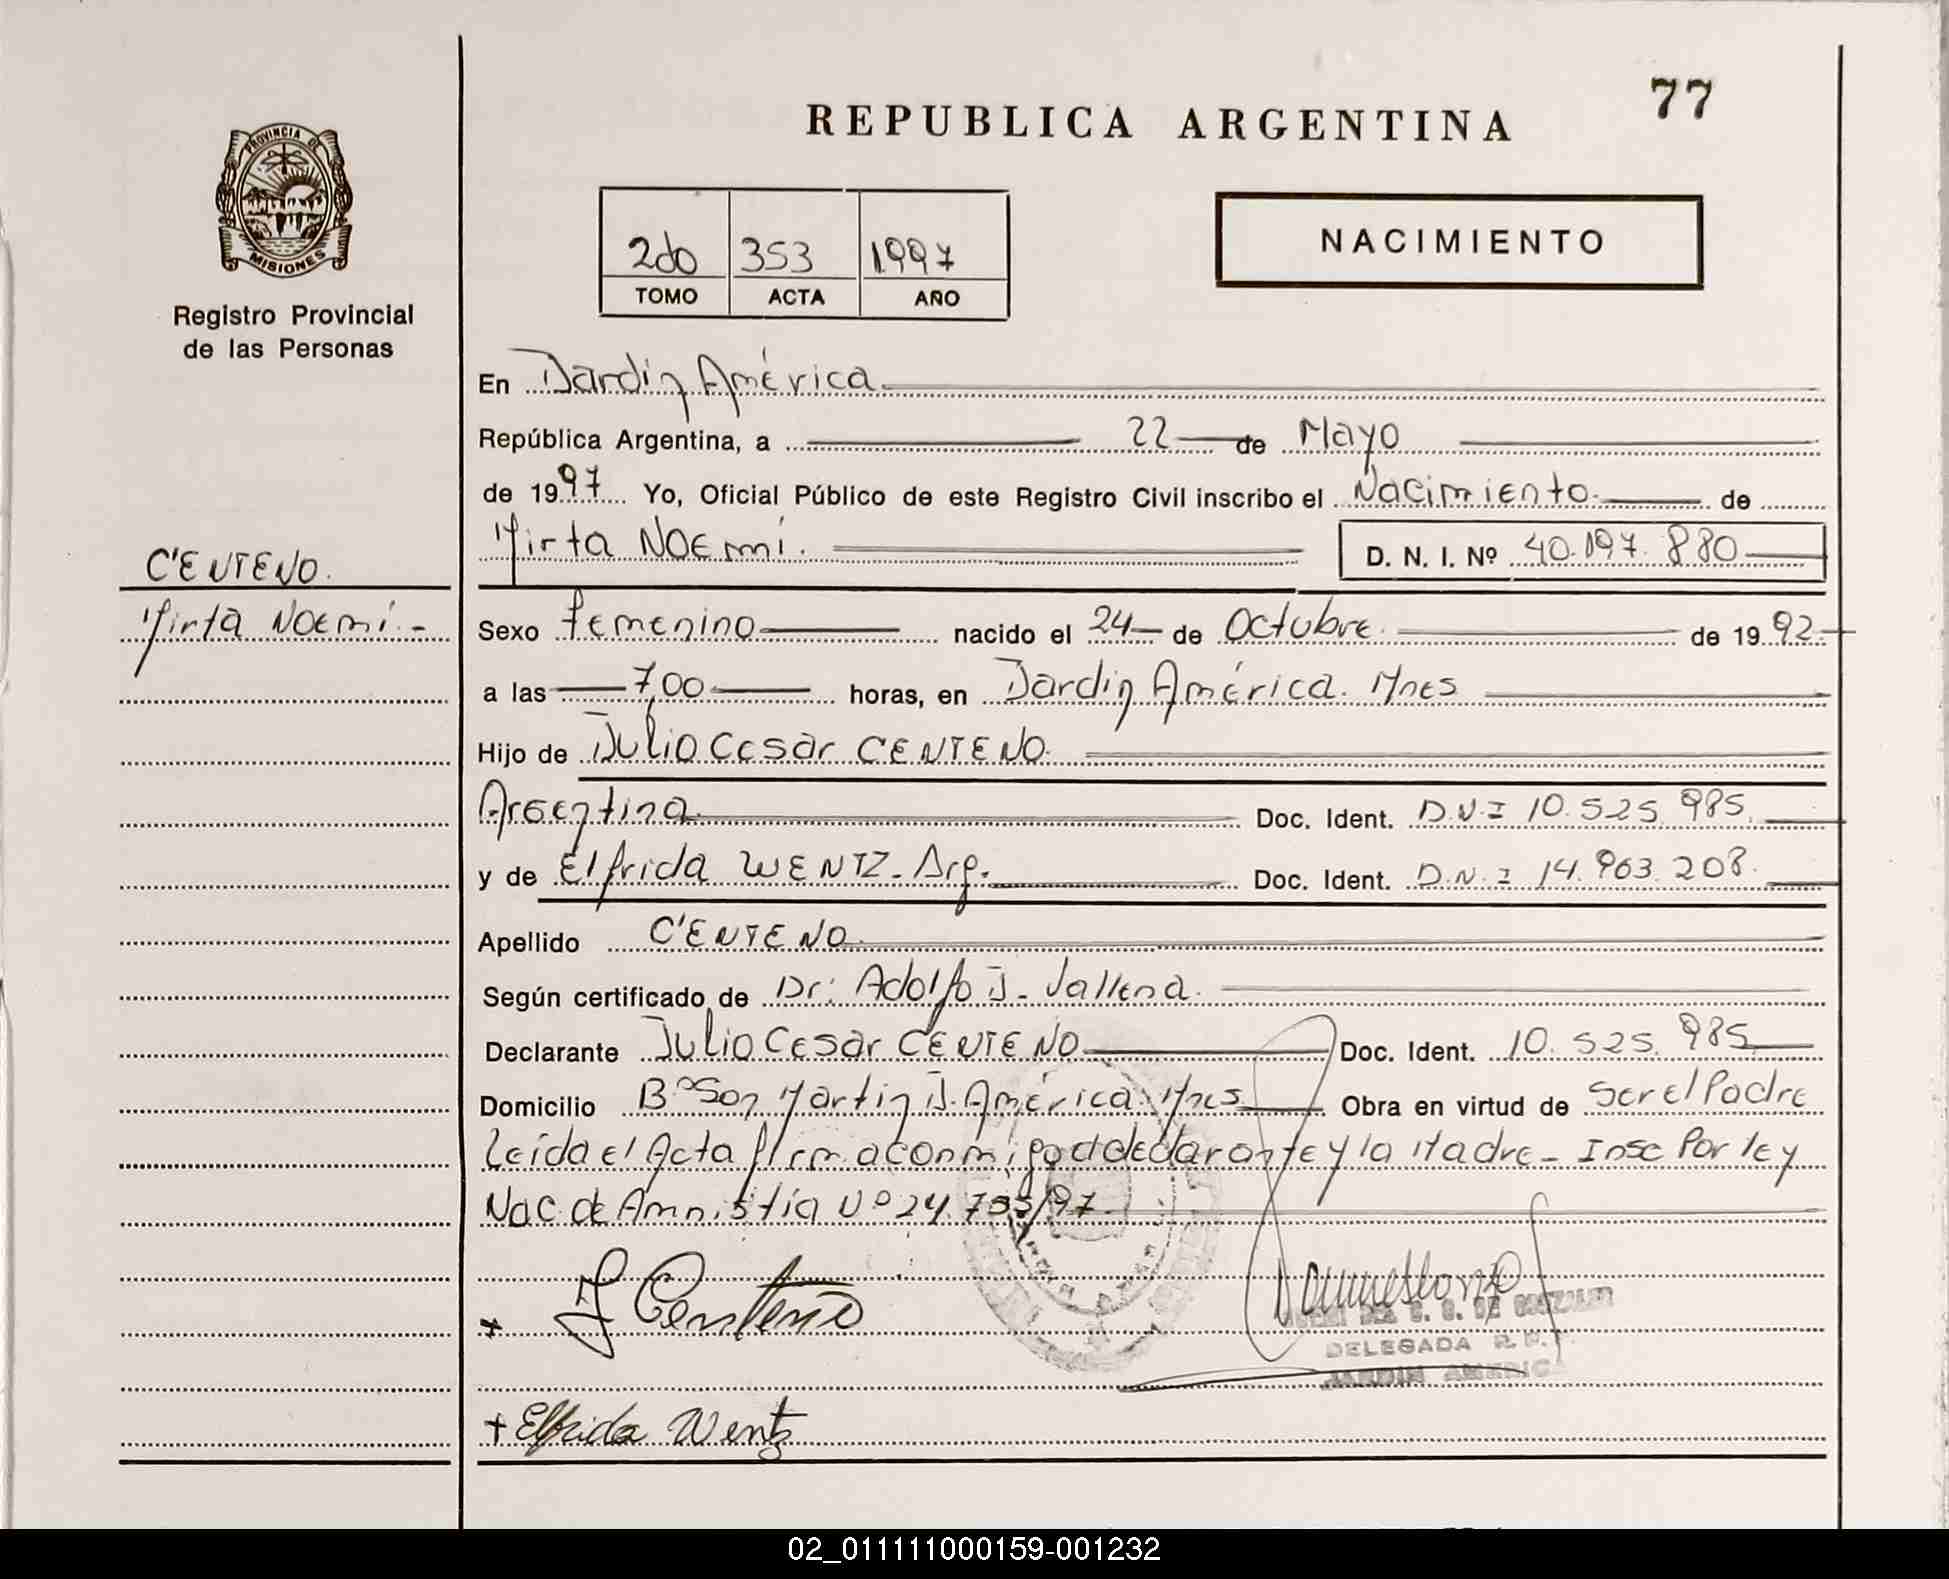 77
REPUBLICA ARGENTINA
PROVINCIA DE
MISIONES
Registro Provincial
de las Personas
2do 353 1997
TOMO ACTA AÑO
NACIMIENTO
En Jardín América.
República Argentina, a 22 de Mayo
de 1997 Yo, Oficial Público de este Registro Civil inscribo el Nacimiento. de
Mirta NOEmí. D. N. I. Nº 40.197.880
CENTENO.
Mirta Noemí.-
Sexo Femenino nacido el 24 de Octubre. de 1992.
a las 7,00 horas, en Jardín América. Mnes
Hijo de Julio Cesar CENTENO.
Argentina. Doc. Ident. D.N.I 10.525.985.
y de Elfrida WENTZ-Arg. Doc. Ident. D.N.I 14.963.208.
Apellido CENTENO.
Según certificado de Dr. Adolfo J. Vallena.
Declarante Julio Cesar CENTENO Doc. Ident. 10.525.985
Domicilio Bº San Martín J. América. Mnes Obra en virtud de Ser el Padre
Leída el Acta firma conmigo el declarante y la Madre- Insc Por ley
Nac. de Amnistía Nº 24.755/97.
J Centeno
DE GONZALEZ
DELEGADA R.P.
JARDIN AMERICA
+ Elfrida Wentz
02_011111000159-001232